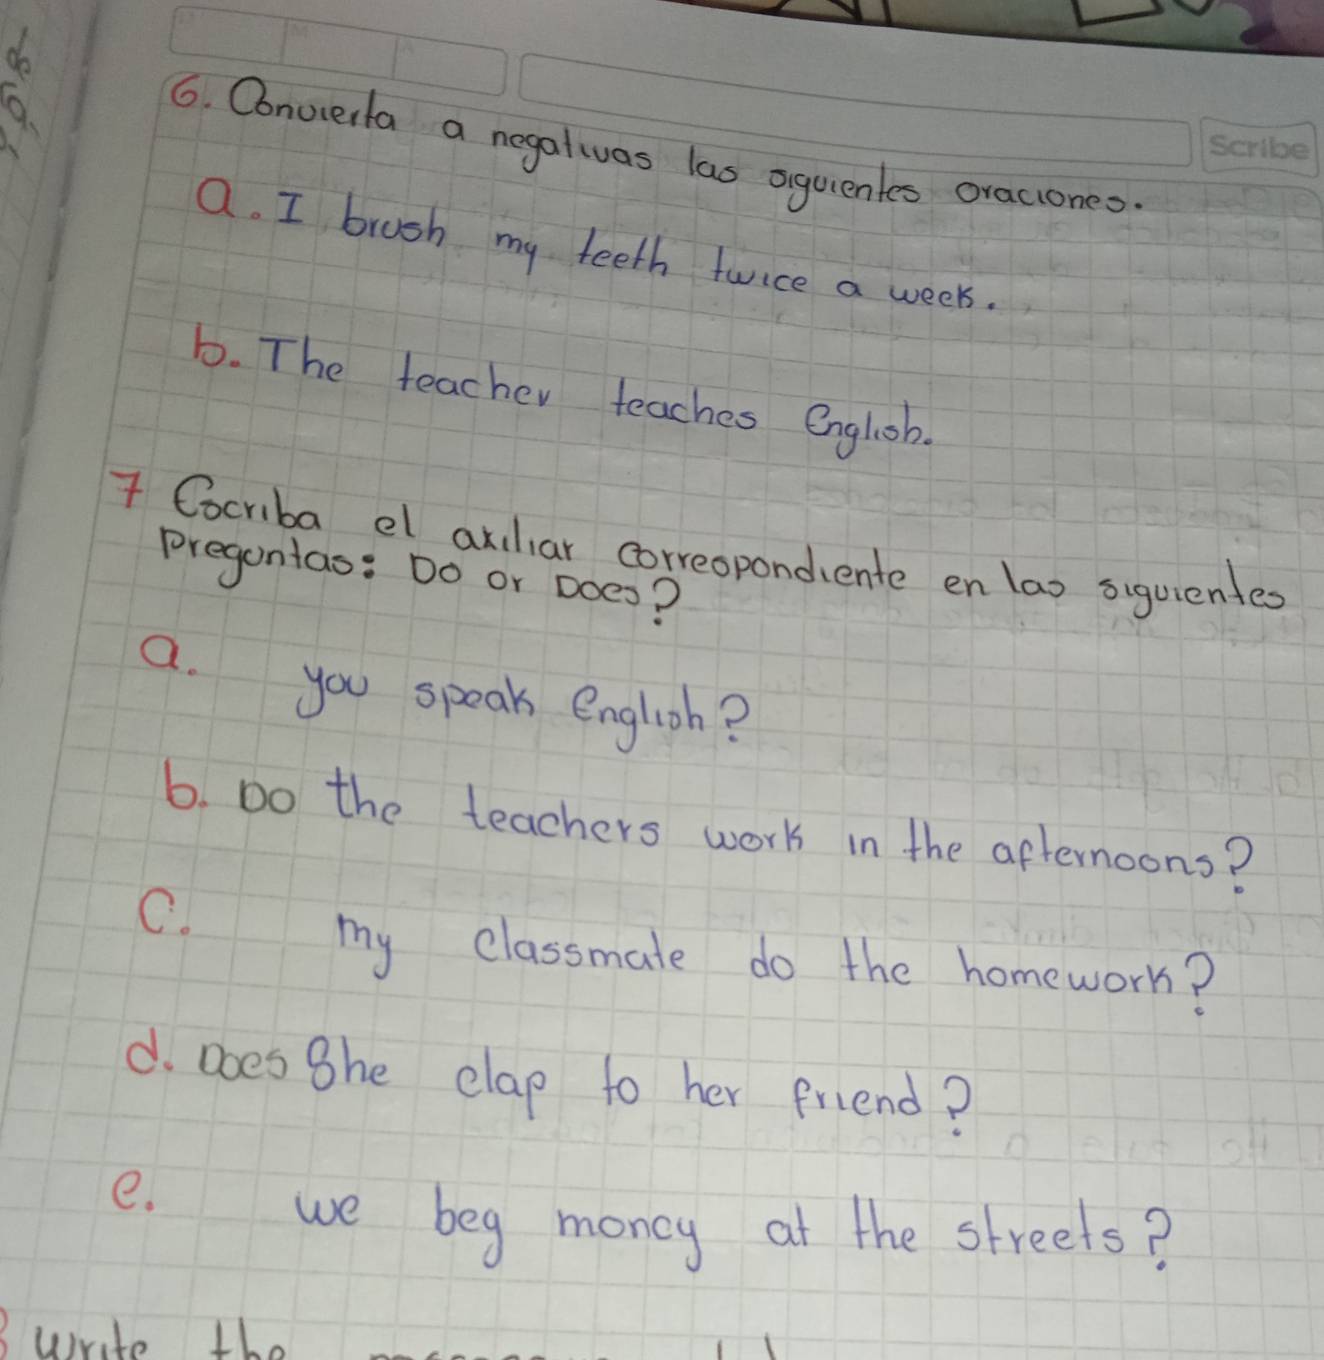 Scribe
6. Convierta a negativas las siguientes oraciones.
a. I brush my teeth twice a week.
b. The teacher teaches English.
7 Escriba el axiliar correspondiente en las siguientes
preguntas: Do or Does?
a. you speak English?
b. Do the teachers work in the afternoons?
c. my classmate do the homework?
d. Does She clap to her friend?
e. we beg money at the streets?
Write the